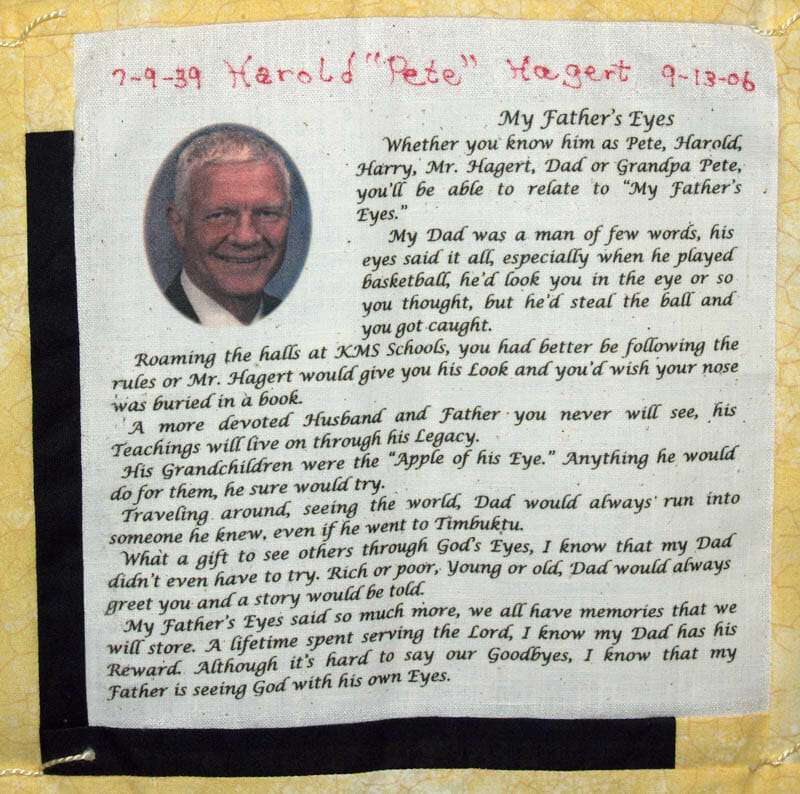 7-9-39 Harold "Pete" Hagert 9-13-06
My Father's Eyes
Whether you know him as Pete, Harold,
Harry, Mr. Hagert, Dad or Grandpa Pete,
you'll be able to relate to "My Father's
Eyes."
My Dad was a man of few words, his
eyes said it all, especially when he played
basketball, he'd look you in the eye or so
you thought, but he'd steal the ball and
you got caught.
Roaming the halls at KMS Schools, you had better be following the
rules or Mr. Hagert would give you his Look and you'd wish your nose
was buried in a book.
A more devoted Husband and Father you never will see, his
Teachings will live on through his Legacy.
His Grandchildren were the "Apple of his Eye." Anything he would
do for them, he sure would try.
Traveling around, seeing the world, Dad would always run into
someone he knew, even if he went to Timbuktu.
What a gift to see others through God's Eyes, I know that my Dad
didn't even have to try. Rich or poor, Young or old, Dad would always
greet you and a story would be told.
My Father's Eyes said so much more, we all have memories that we
will store. A lifetime spent serving the Lord, I know my Dad has his
Reward. Although it's hard to say our Goodbyes, I know that my
Father is seeing God with his own Eyes.